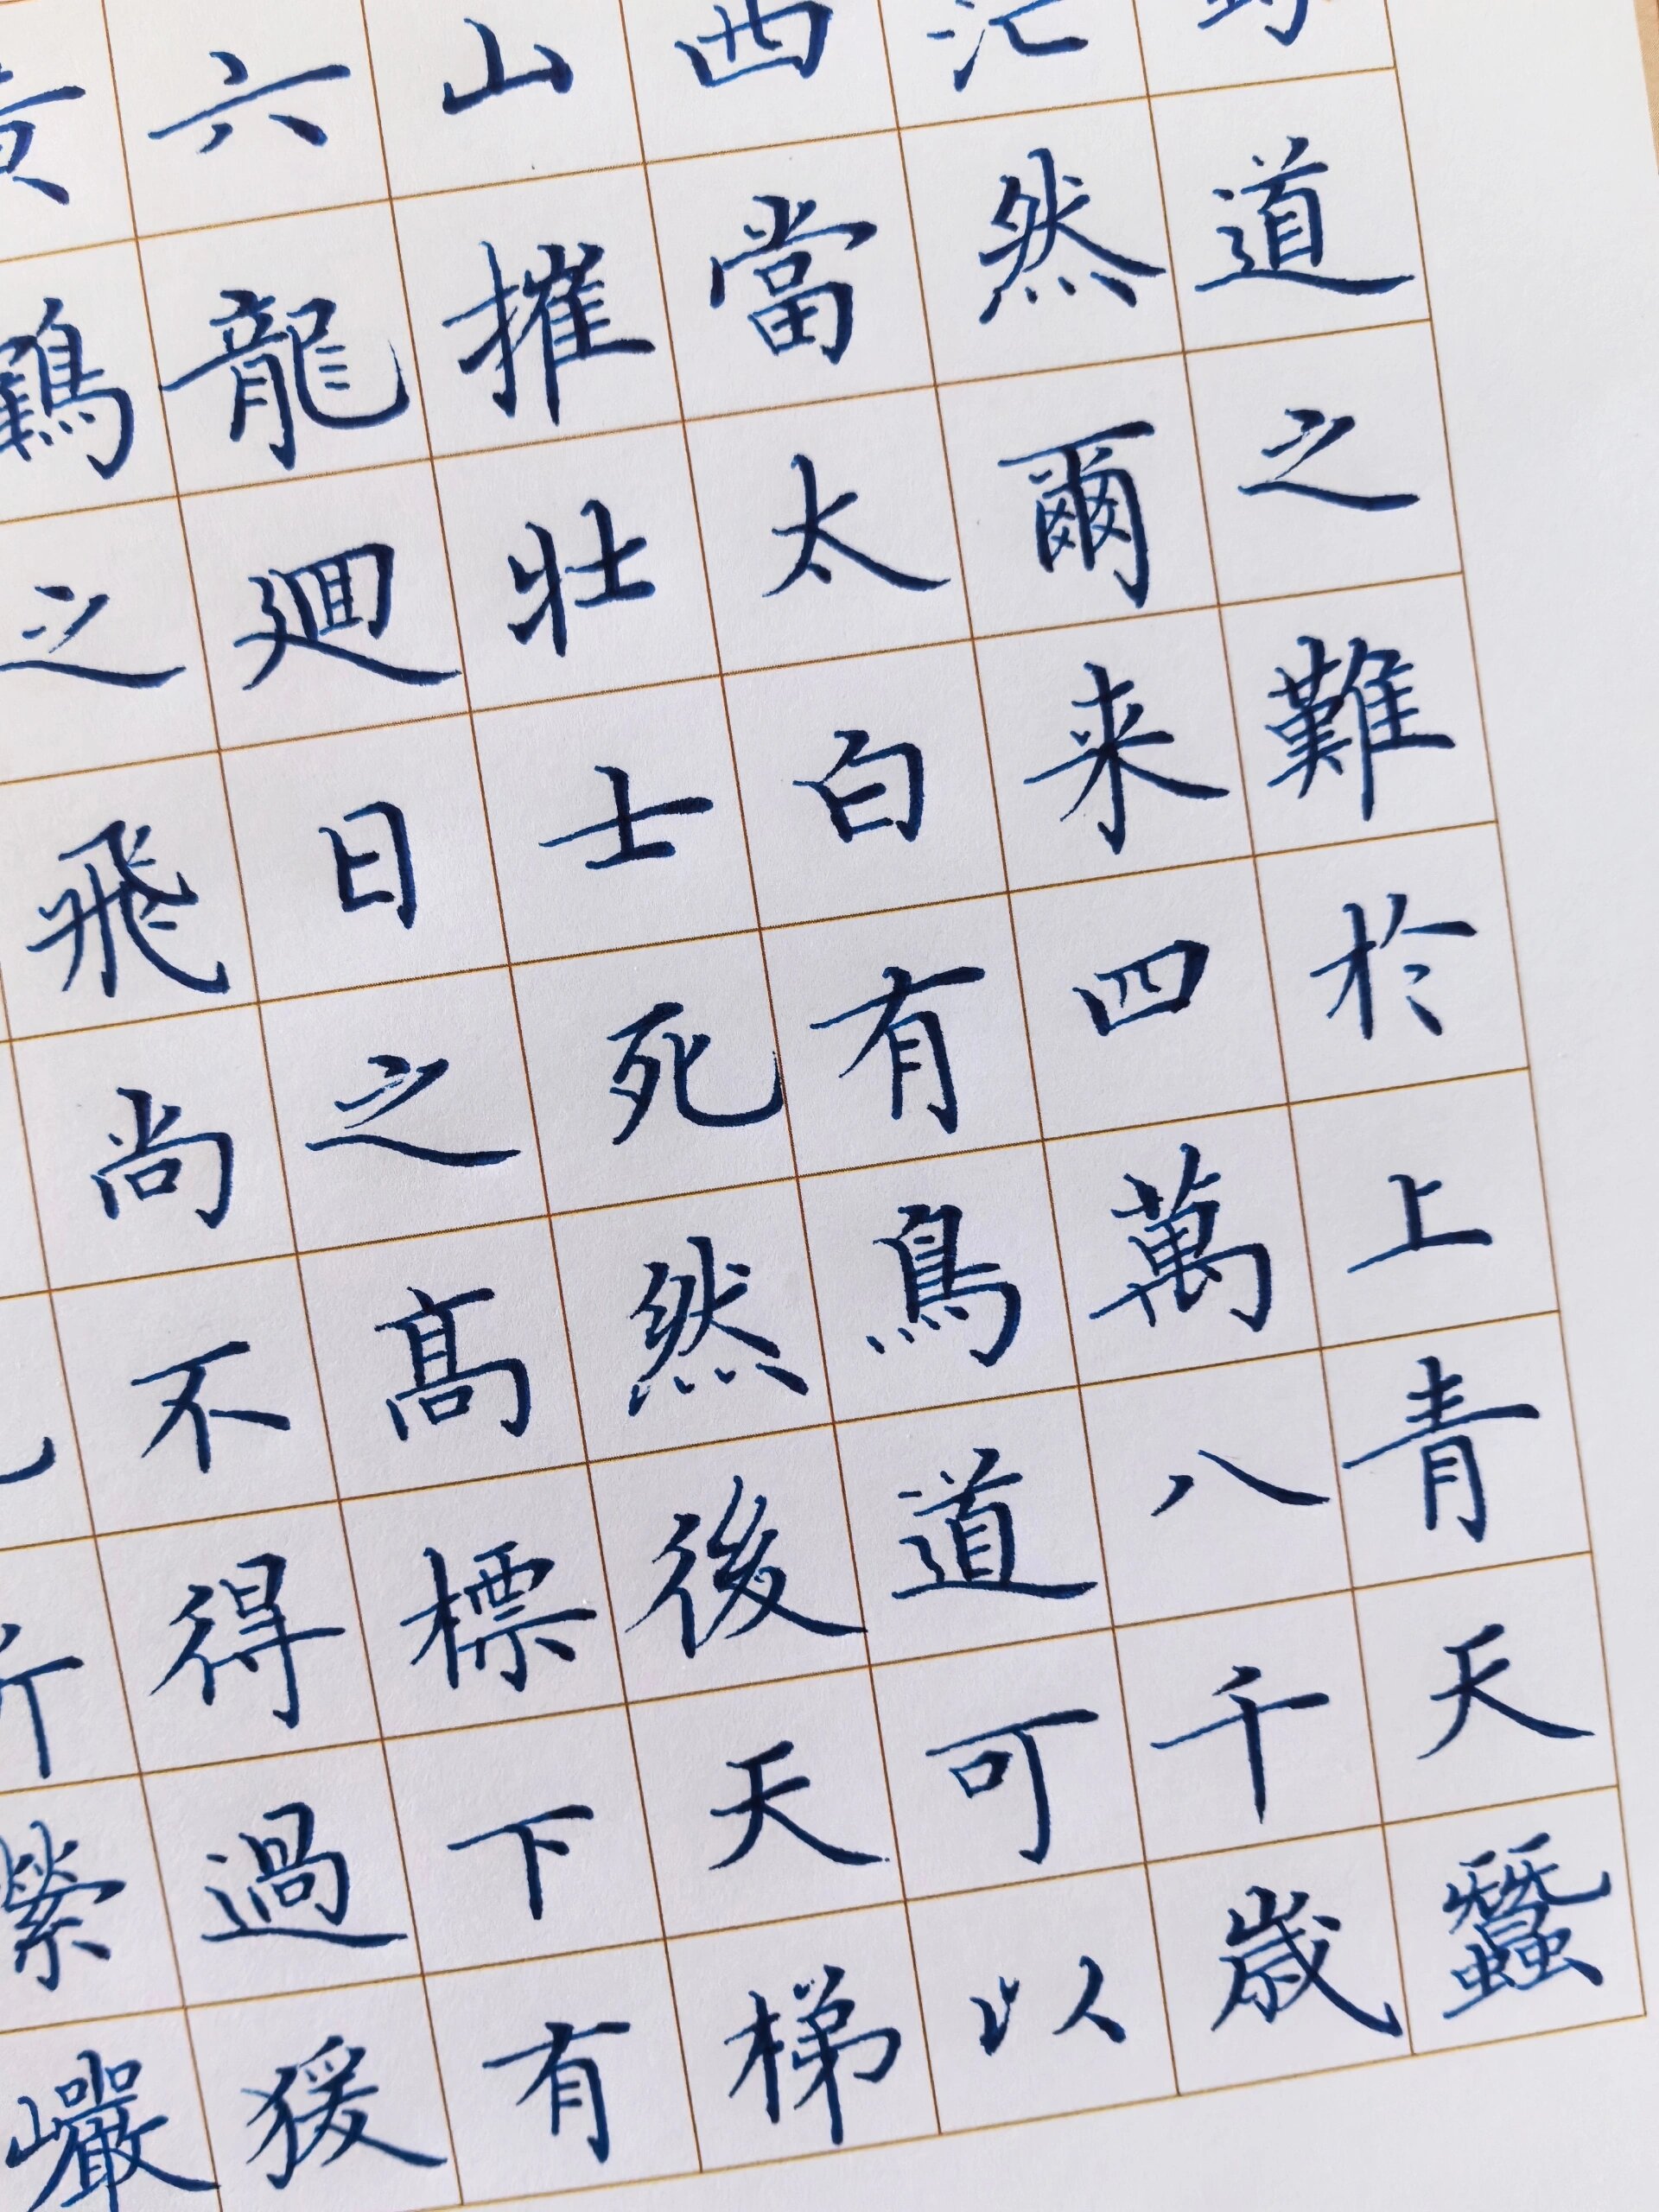 道之難於上青天蠶
然爾来四萬八千歲
西當太白有鳥道可以
山摧壯士死然後天梯
六龍廻日之髙標下有
鶴之飛尚不得過猨
縈巗